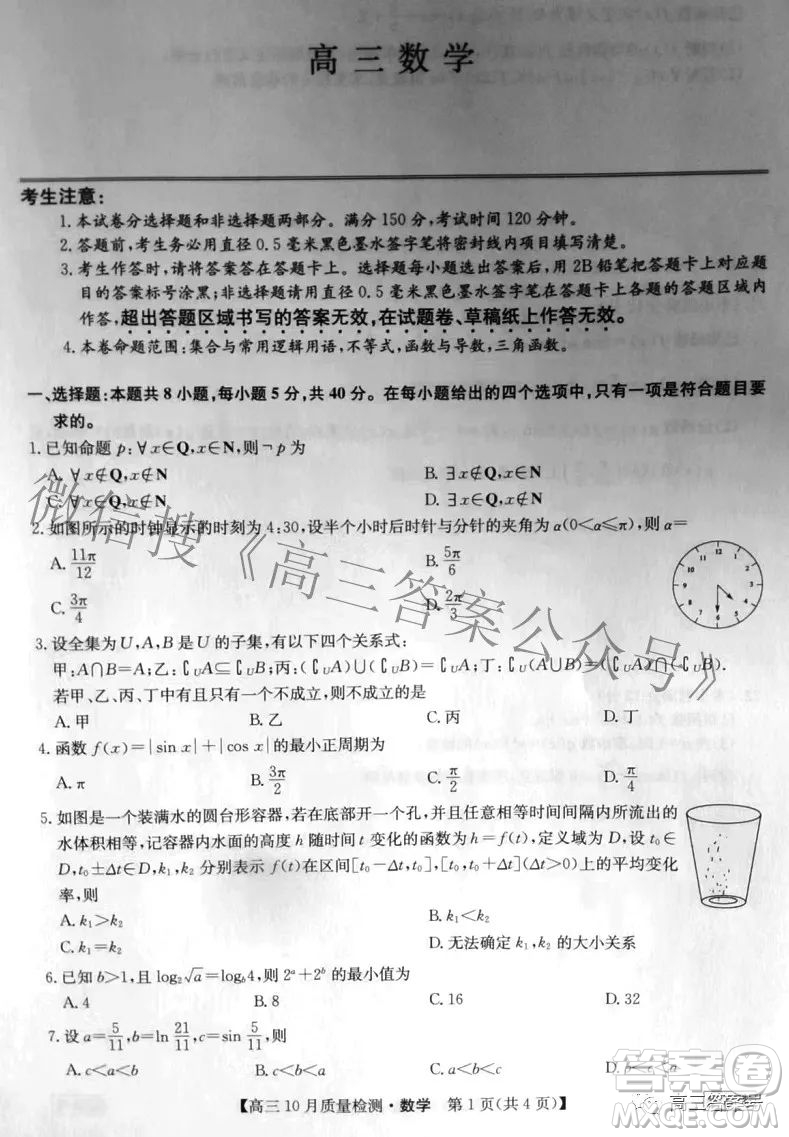 高三数学
考生注意：
1. 本试卷分选择题和非选择题两部分。满分 150 分，考试时间 120 分钟。
2. 答题前，考生务必用直径 0.5 毫米黑色墨水签字笔将密封线内项目填写清楚。
3. 考生作答时，请将答案答在答题卡上。选择题每小题选出答案后，用 2B 铅笔把答题卡上对应题
目的答案标号涂黑；非选择题请用直径 0.5 毫米黑色墨水签字笔在答题卡上各题的答题区域内
作答，超出答题区域书写的答案无效，在试题卷、草稿纸上作答无效。
4. 本卷命题范围：集合与常用逻辑用语，不等式，函数与导数，三角函数。
一、选择题：本题共 8 小题，每小题 5 分，共 40 分。在每小题给出的四个选项中，只有一项是符合题目要
求的。
1. 已知命题 p：∀x∈Q，x∈N，则 ¬p 为
A. ∀x∉Q，x∉N B. ∃x∉Q，x∈N
C. ∀x∈Q，x∉N D. ∃x∈Q，x∉N
2. 如图所示的时钟显示的时刻为 4:30，设半个小时后时针与分针的夹角为 α(0<α≤π)，则 α=
A. 11π/12 B. 5π/6
C. 3π/4 D. 2π/3
12 1 2 3 4 5 6 7 8 9 10 11
3. 设全集为 U，A，B 是 U 的子集，有以下四个关系式：
甲：A∩B=A；乙：∁UA⊆∁UB；丙：(∁UA)∪(∁UB)=∁UA；丁：∁U(A∪B)=(∁UA)∩(∁UB).
若甲、乙、丙、丁中有且只有一个不成立，则不成立的是
A. 甲 B. 乙 C. 丙 D. 丁
4. 函数 f(x)=|sin x|+|cos x|的最小正周期为
A. π B. 3π/2 C. π/2 D. π/4
5. 如图是一个装满水的圆台形容器，若在底部开一个孔，并且任意相等时间间隔内所流出的
水体积相等，记容器内水面的高度 h 随时间 t 变化的函数为 h=f(t)，定义域为 D，设 t₀∈
D，t₀±Δt∈D，k₁，k₂ 分别表示 f(t)在区间[t₀−Δt，t₀]，[t₀，t₀+Δt](Δt>0)上的平均变化
率，则
A. k₁>k₂ B. k₁<k₂
C. k₁=k₂ D. 无法确定 k₁，k₂ 的大小关系
6. 已知 b>1，且 log₂√a=log_b4，则 2ᵃ+2ᵇ 的最小值为
A. 4 B. 8 C. 16 D. 32
7. 设 a=5/11，b=ln 21/11，c=sin 5/11，则
A. c<a<b B. c<b<a C. a<b<c D. b<c<a
【高三 10 月质量检测·数学 第 1 页(共 4 页)】
微信搜《高三答案公众号》
答案卷
高三答案号
MXQE.COM